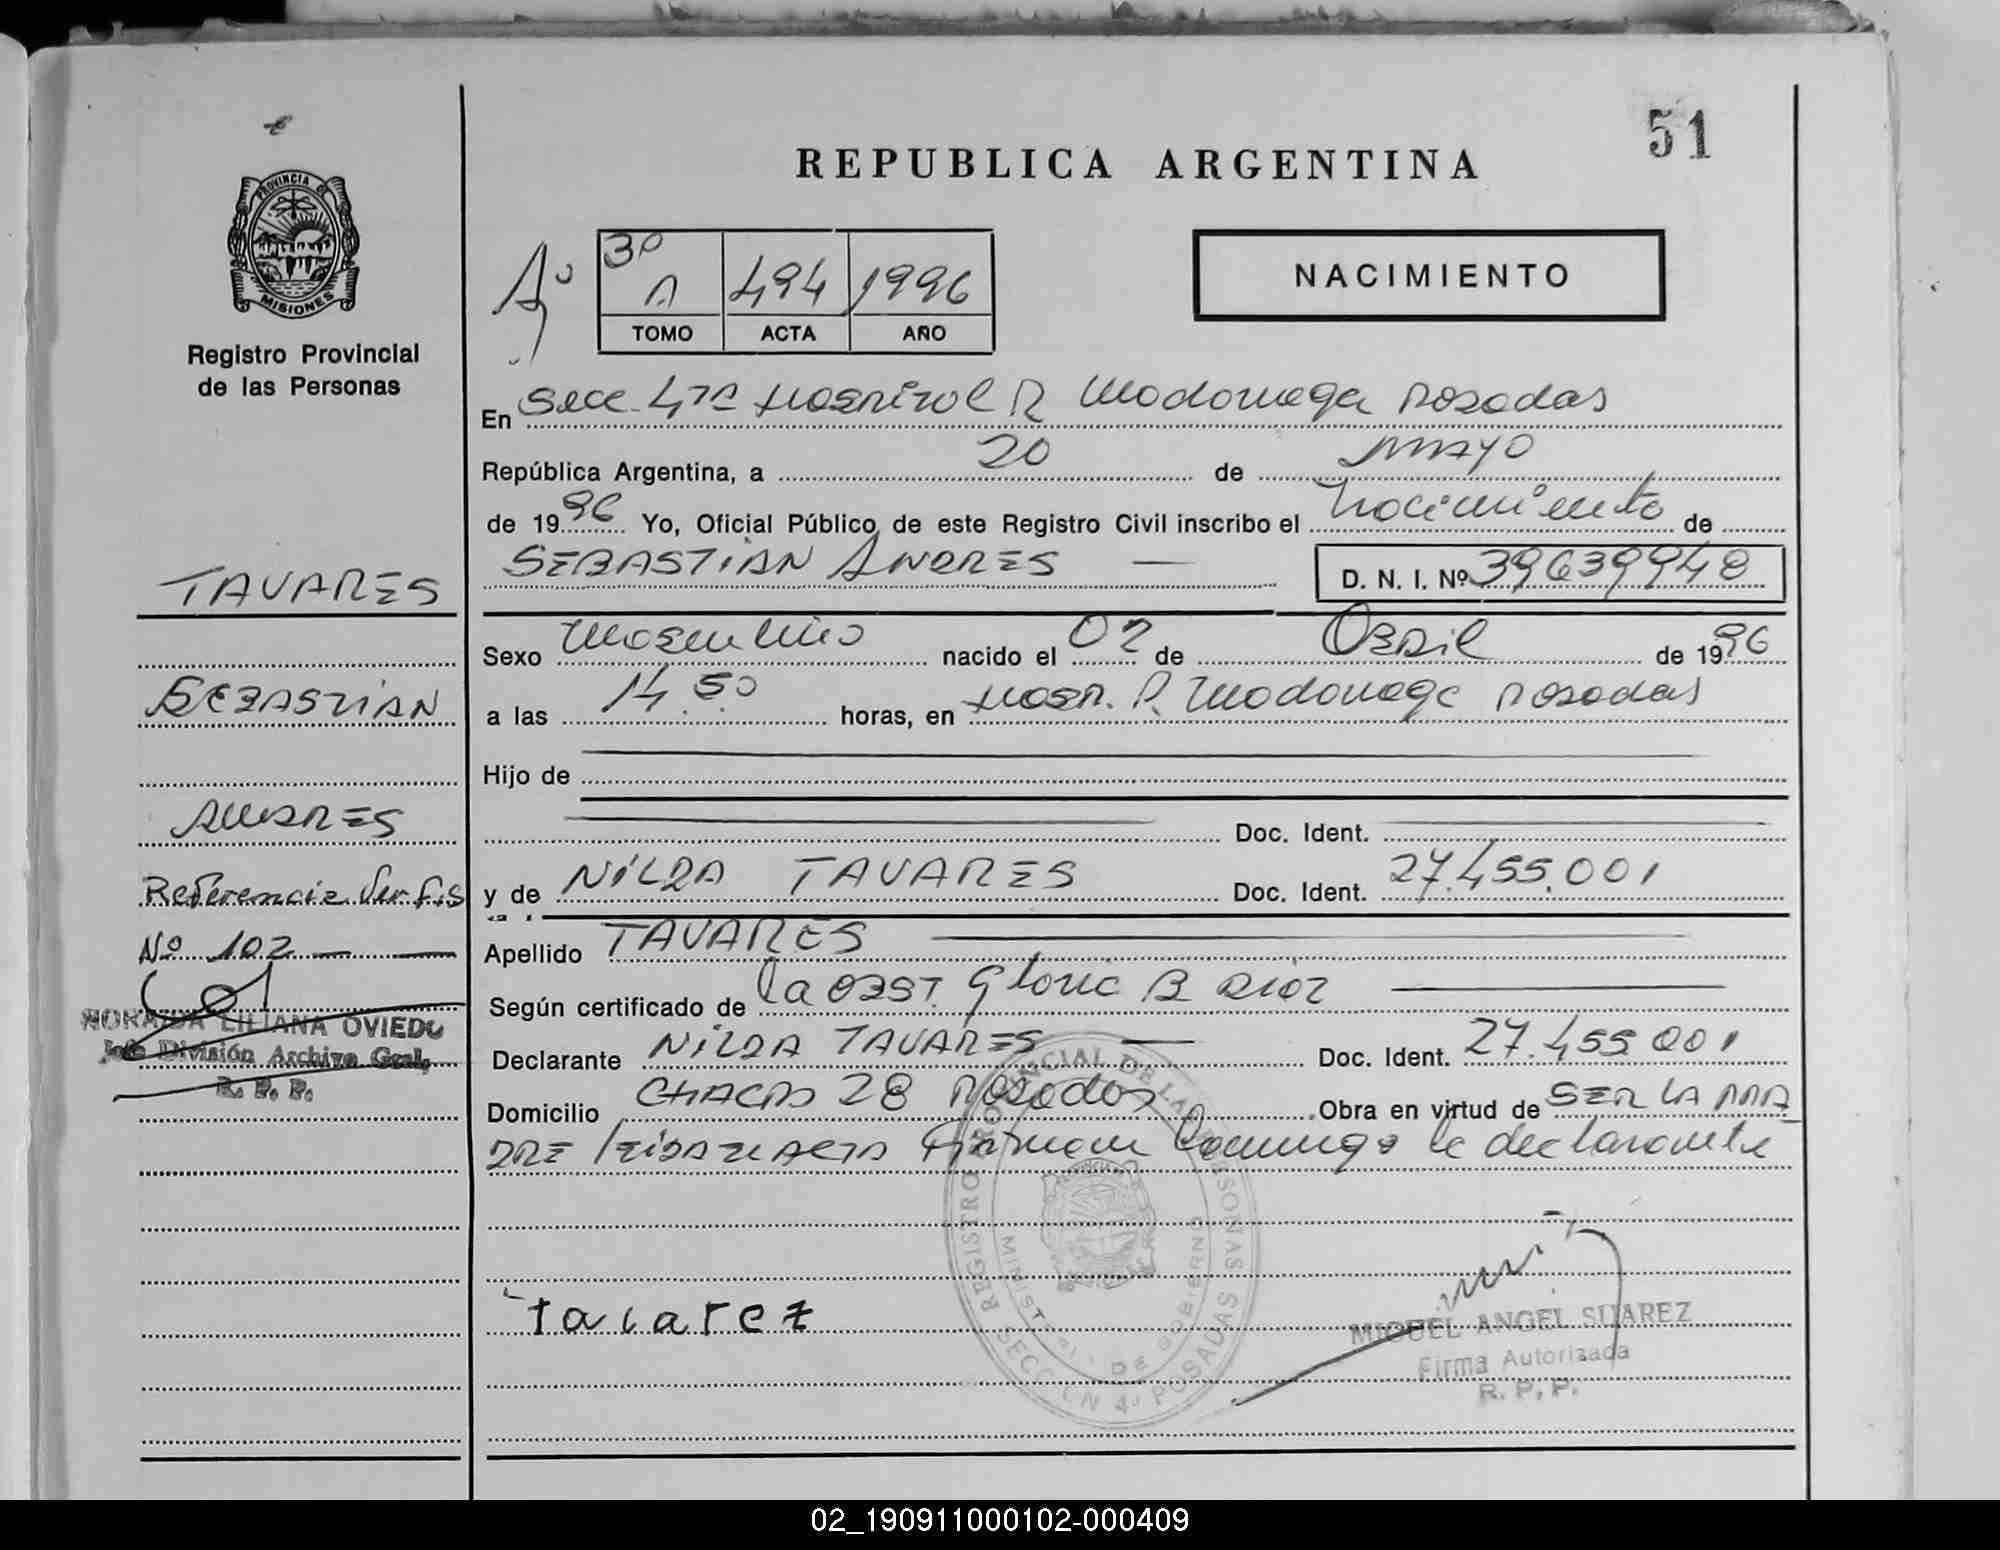 51
REPUBLICA ARGENTINA
PROVINCIA DE
MISIONES
Registro Provincial
de las Personas
3º
A 494 1996
TOMO ACTA AÑO
NACIMIENTO
En Secc. 4ta Hospital R Madariaga Posadas
República Argentina, a 20 de MAYO
de 1996 Yo, Oficial Público de este Registro Civil inscribo el Nacimiento de
SEBASTIAN ANDRES — D. N. I. Nº 39639948
TAVARES
Sexo Masculino nacido el 02 de Abril de 1996
SEBASTIAN
a las 14.50 horas, en Hosp. R. Madariaga Posadas
Hijo de
ANDRES
Doc. Ident.
Referencia Ver fs
y de NILDA TAVARES Doc. Ident. 27.455.001
Nº 102
Apellido TAVARES
Según certificado de la OBST. Gloria B Diaz
NORAIDA LILIANA OVIEDO
Jefe División Archivo Gral.
R. P. P.
Declarante NILDA TAVARES — Doc. Ident. 27.455.001
Domicilio CHACRA 28 Posadas Obra en virtud de SER LA MA
DRE leida el ACTA Firman Conmigo la declarante
REGISTRO PROVINCIAL DE LAS PERSONAS
MINISTERIO DE GOBIERNO
SECCION 4ª POSADAS
tavarez
MIGUEL ANGEL SUAREZ
Firma Autorizada
R. P. P.
02_190911000102-000409